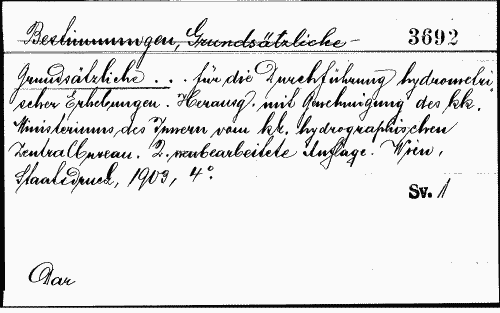 Bestimmungen, Grundsätzliche - 3692
Grundsätzliche . . . für die Durchführung hydrometri-
scher Erhebungen. Herausg. mit Genehmigung des kk.
Ministeriums des Innern vom kk. hydrographischen
Zentralbureau. 2. neubearbeitete Auflage. Wien,
Staatsdruck, 1903, 4°.
Sv. 1